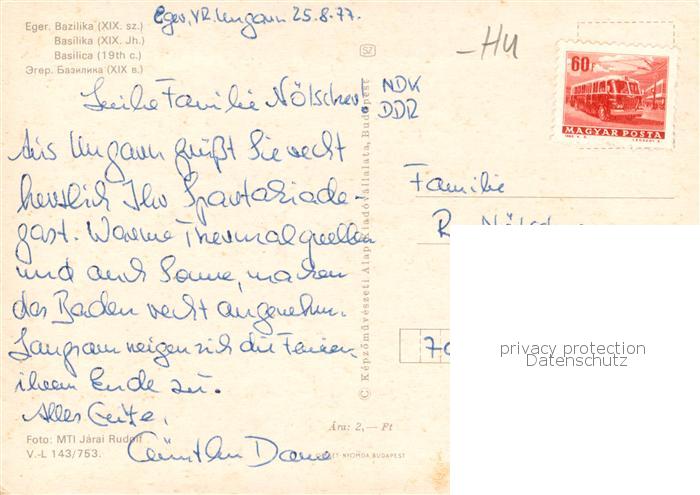 Eger, VR Ungarn 25.8.77.
Eger. Bazilika (XIX. sz.)
Basilika (XIX. Jh.)
Basilica (19th c.)
Эгер. Базилика (XIX в.)
SZ
-HU
60f
MAGYAR POSTA
Liebe Familie Nötscher!
NDK
DDR
Aus Ungarn grüßt Sie recht
herzlich Ihr Spartakiade-
gast. Warme Thermalquellen
und auch Sonne, machen
das Baden recht angenehm.
Langsam neigen sich die Ferien
ihrem Ende zu.
Alles Gute,
Günther
Familie
R.
70
© Képzőművészeti Alap Kiadóvállalata, Budapest
privacy protection
Datenschutz
Ára: 2,— Ft
Foto: MTI Járai Rudolf
V.-L 143/753.
NYOMDA, BUDAPEST